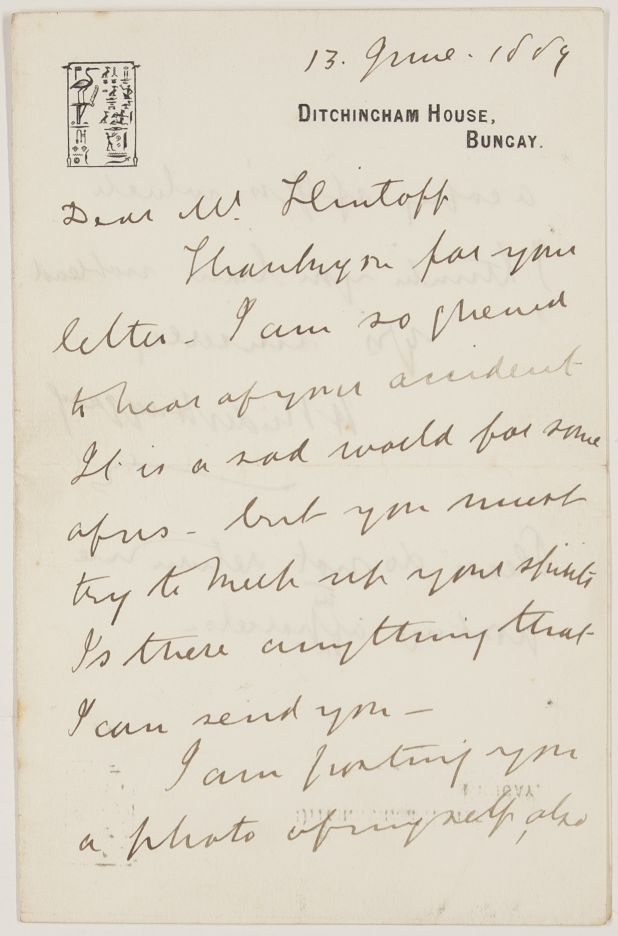 13. June. 1889
DITCHINGHAM HOUSE,
BUNGAY.
Dear Mr. Hintoff
Thankyou for your
letter - I am so grieved
to hear of your accident
It is a sad world for some
of us - but you must
try to keep up your spirits
Is there anything that
I can send you -
I am posting you
a photo of myself, also